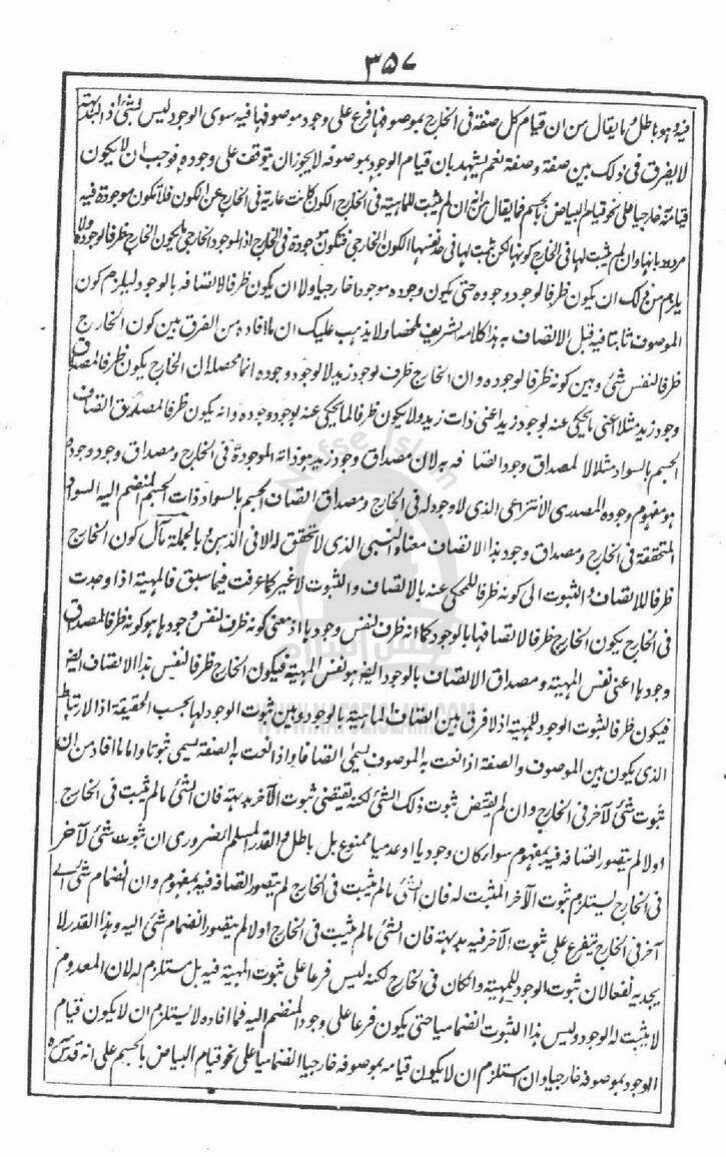 ٣٥٧
فيه وهو باطل وما يقال من ان قيام كل صفة فى الخارج بموصوفها فرع على وجود موصوفها فيه سوى الوجود ليس بشئ اذ البديهة
لا يفرق فى ذلك بين صفة وصفة نعم يشهد بان قيام الوجود بموصوفه لا يجوز ان يتوقف على وجوده فوجب ان لا يكون
قيامه خارجيا على نحو قيام البياض بالجسم فما يقال من انه ان لم يثبت للماهية فى الخارج الكون كانت عارية فى الخارج عن الكون فلا تكون موجودة فيه
مردود بانها وان لم يثبت لها فى الخارج كونها لكن ثبت لها فى حد نفسها الكون الخارجى فتكون موجودة فى الخارج اذ الموجود الخارجى ما يكون الخارج ظرفا لوجوده ولا
يلزم من ذلك ان يكون ظرفا لوجود وجوده حتى يكون وجوده موجودا خارجيا ولا ان يكون ظرفا لاتصافه بالوجود ليلزم كون
الموصوف ثابتا فيه قبل الاتصاف به هذا كلامه الشريف ملخصا ولا يذهب عليك ان ما افاده من الفرق بين كون الخارج
ظرفا لنفس شئ وبين كونه ظرفا لوجوده وان الخارج ظرف لوجود زيد لا لوجود وجوده انما محصله ان الخارج يكون ظرفا لمصداق
وجود زيد مثلا اعنى ما يحكى عنه لوجود زيد اعنى ذات زيد ولا يكون ظرفا لما يحكى عنه لوجود وجوده وانه يكون ظرفا لمصداق اتصاف
الجسم بالسواد مثلا لا لمصداق وجود اتصافه به لان مصداق وجود زيد هو ذاته الموجودة فى الخارج ومصداق وجود وجوده
هو مفهوم وجوده المصدرى الانتزاعى الذى لا وجود له فى الخارج ومصداق اتصاف الجسم بالسواد ذات الجسم المنضم اليه السواد
المتحققة فى الخارج ومصداق وجود هذا الاتصاف معناه النسبى الذى لا تحقق له الا فى الذهن وبالجملة مآل كون الخارج
ظرفا للاتصاف والثبوت الى كونه ظرفا للمحكى عنه بالاتصاف والثبوت لا غير كما عرفت فيما سبق فالمهية اذا وجدت
فى الخارج يكون الخارج ظرفا لاتصافها بالوجود كما انه ظرف لنفس وجودها اذ معنى كونه ظرف لنفس وجودها هو كونه ظرفا لمصداق
وجودها اعنى نفس المهية ومصداق الاتصاف بالوجود ايضا هو نفس المهية فيكون الخارج ظرفا لنفس هذا الاتصاف ايضا
فيكون ظرفا لثبوت الوجود للمهية اذ لا فرق بين اتصاف الماهية بالوجود وبين ثبوت الوجود لها بحسب الحقيقة اذ الارتباط
الذى يكون بين الموصوف والصفة اذا نعت به الموصوف يسمى اتصافا واذا نعت به الصفة يسمى ثبوتا واما ما افاد من ان
ثبوت شئ لآخر فى الخارج وان لم يقتض ثبوت ذلك الشئ لكنه يقتضى ثبوت الآخر بديهة فان الشئ ما لم يثبت فى الخارج
اولا لم يتصور اتصافه فيه بمفهوم سواء كان وجوديا او عدميا فممنوع بل باطل والقدر المسلم الضرورى ان ثبوت شئ لآخر
فى الخارج يستلزم ثبوت الآخر المثبت له فان الشئ ما لم يثبت فى الخارج لم يتصور اتصافه فيه بمفهوم وان انضمام شئ الى
آخر فى الخارج يتفرع على ثبوت الآخر فيه بديهة فان الشئ ما لم يثبت فى الخارج اولا لم يتصور انضمام شئ اليه وهذا القدر لا
يجديه نفعا لان ثبوت الوجود للمهية وان كان فى الخارج لكنه ليس فرعا على ثبوت المهية فيه بل مستلزم له لان المعدوم
لا يثبت له الوجود وليس هذا الثبوت انضماميا حتى يكون فرعا على وجود المنضم اليه فما افاده لا يستلزم ان لا يكون قيام
الوجود بموصوفه خارجيا وان استلزم ان لا يكون قيامه بموصوفه خارجيا انضماميا على نحو قيام البياض بالجسم على انه قدس سره
Nafse Islam
نفس اسلام
WWW.NAFSEISLAM.COM